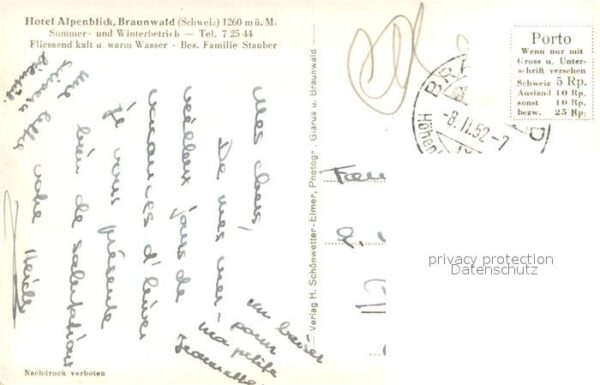 Hotel Alpenblick, Braunwald (Schweiz) 1260 m ü. M.
Sommer- und Winterbetrieb — Tel. 7 25 44
Fliessend kalt u warm Wasser - Bes. Familie Stauber
Mes chers,
De mes mer-
veilleux jours de
vacances d'hiver
je vous présente
bien de salutations
votre
un baiser
pour
ma petite
Nachdruck verboten
— Verlag H. Schönwetter-Elmer, Photogr., Glarus u. Braunwald —
BR
-8.II.52-7
Höhen
Porto
Wenn nur mit
Gruss u. Unter-
schrift versehen
Schweiz 5 Rp.
Ausland 10 Rp.
sonst 10 Rp.
bezw. 25 Rp.
privacy protection
Datenschutz